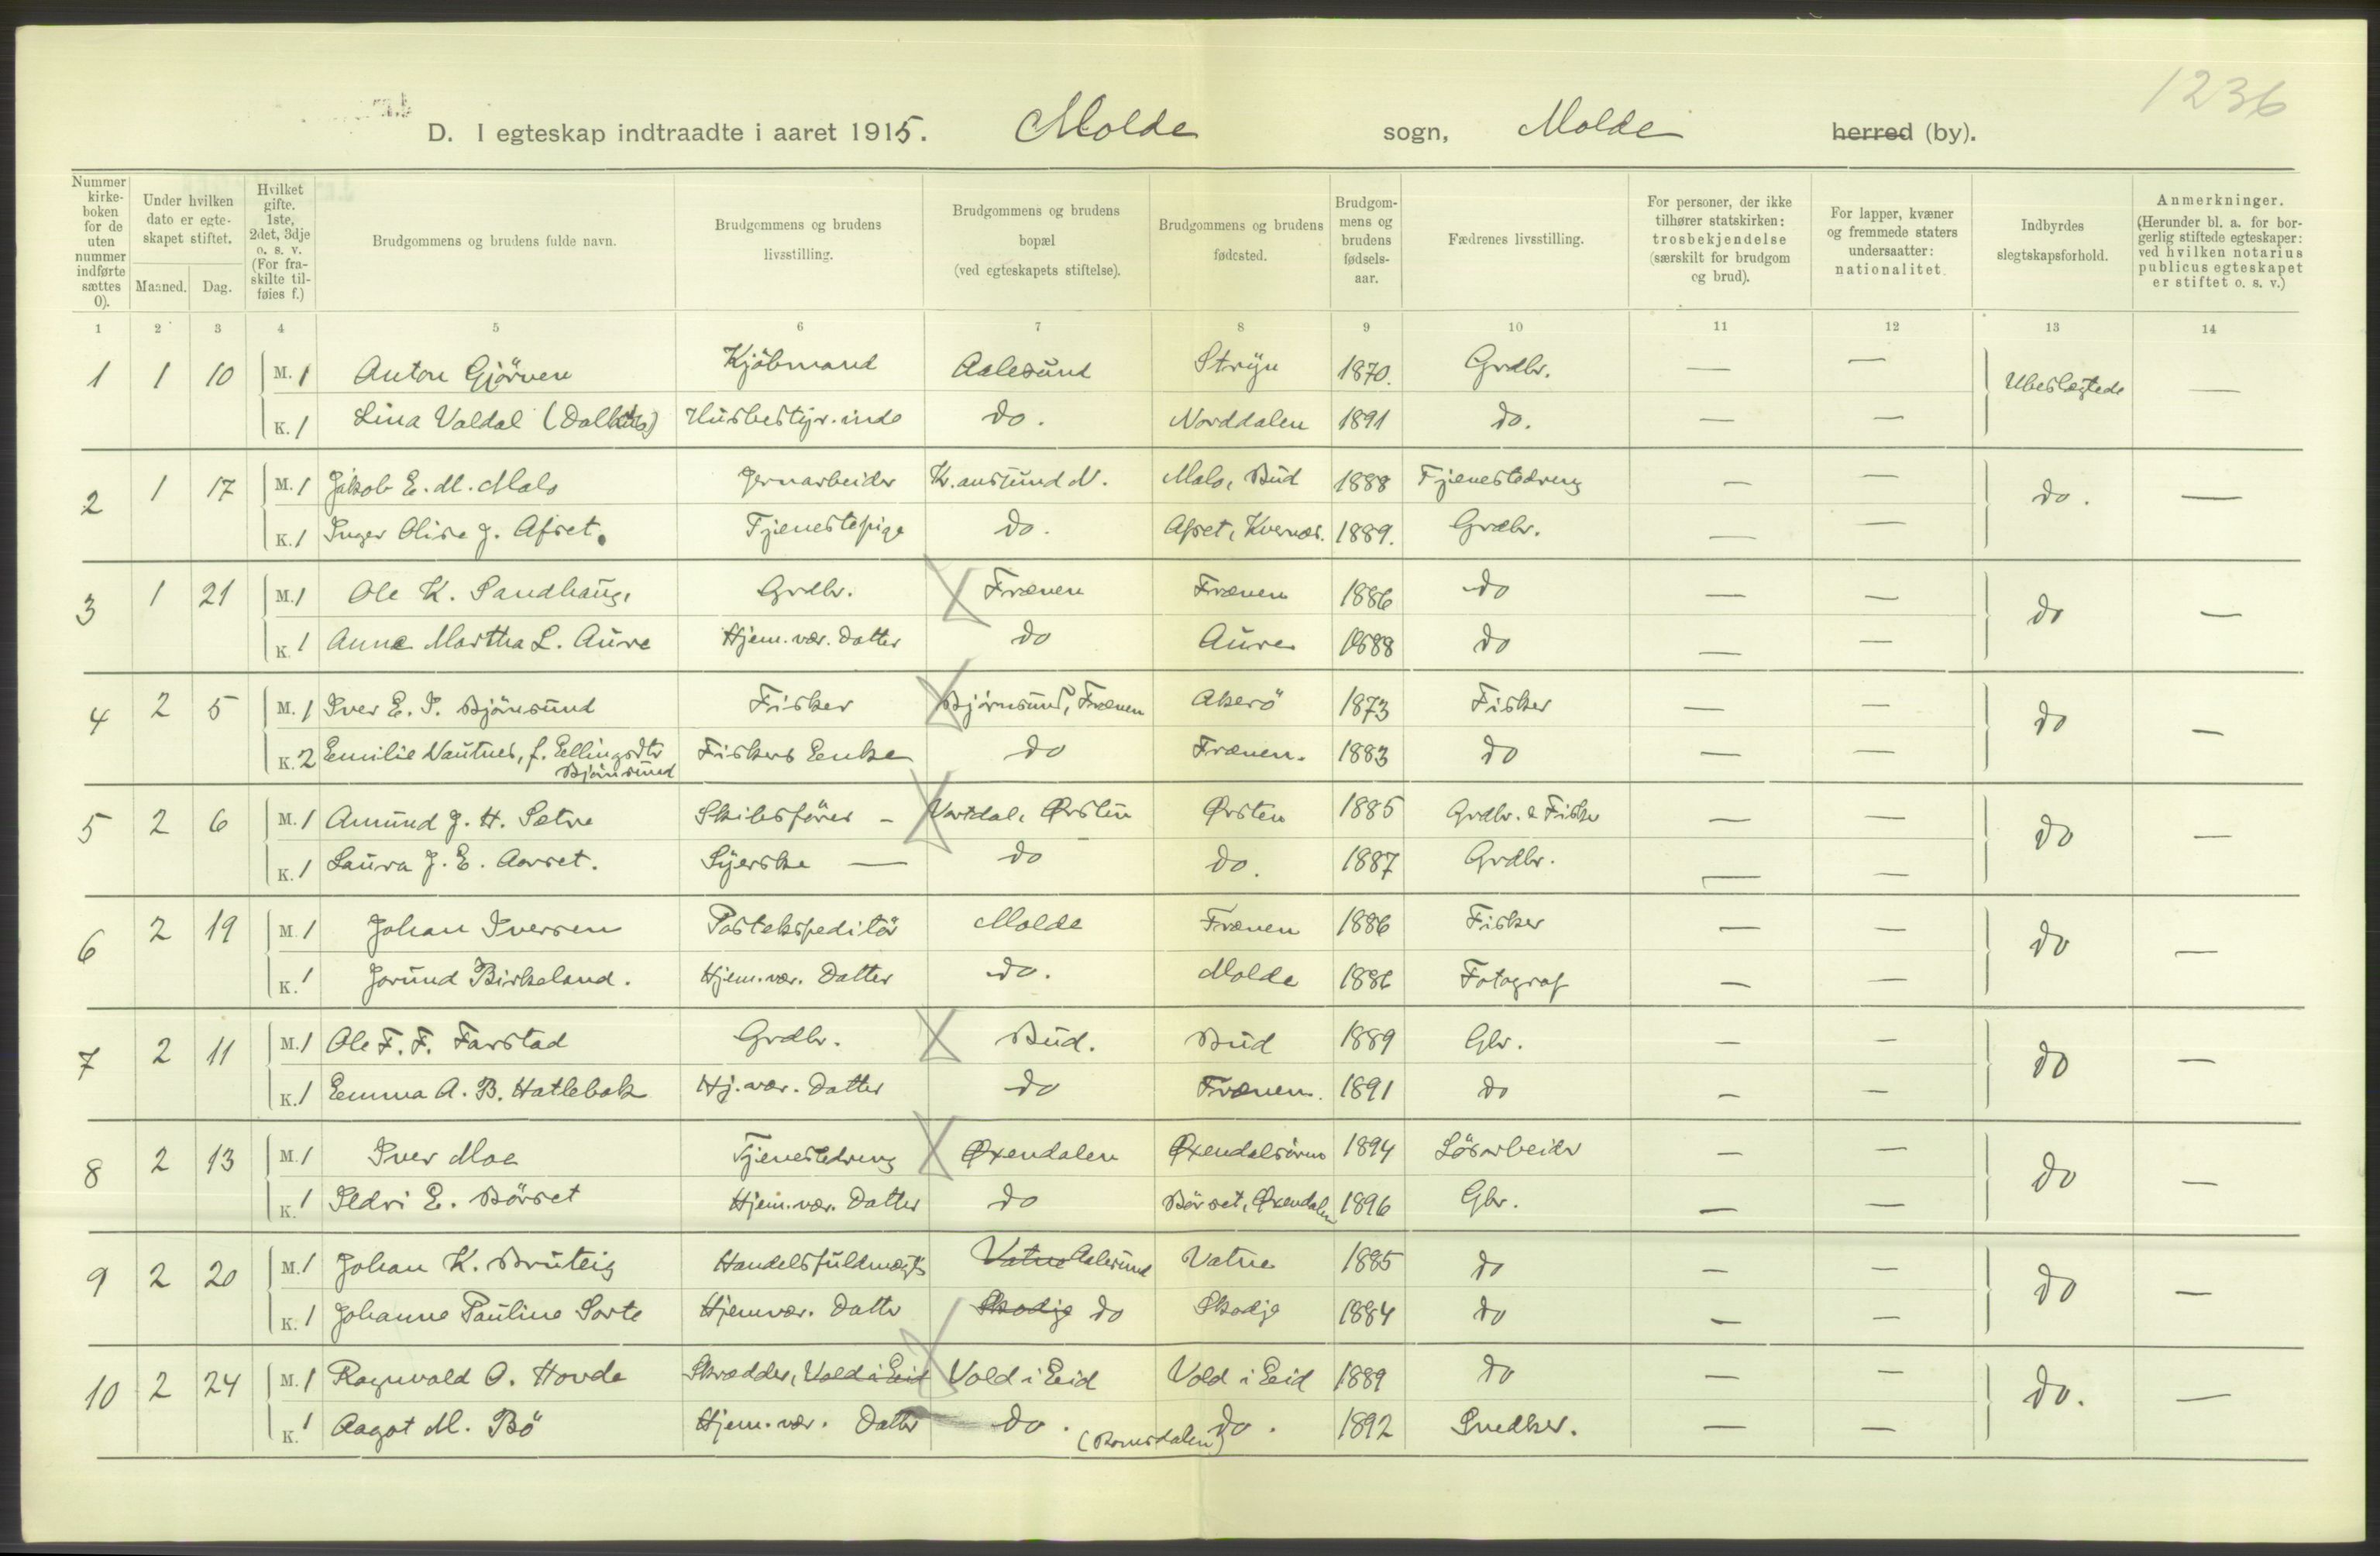 1236
D. I egteskap indtraadte i aaret 1915. Molde sogn, Molde herred (by).
Nummer kirke-boken for de uten nummer indførte sættes 0).
Under hvilken dato er egte-skapet stiftet.
Maaned. Dag.
Hvilket gifte. 1ste, 2det, 3dje o. s. v. (For fra-skilte til-føies f.)
Brudgommens og brudens fulde navn.
Brudgommens og brudens livsstilling.
Brudgommens og brudens bopæl (ved egteskapets stiftelse).
Brudgommens og brudens fødested.
Brudgom-mens og brudens fødsels-aar.
Fædrenes livsstilling.
For personer, der ikke tilhører statskirken: trosbekjendelse (særskilt for brudgom og brud).
For lapper, kvæner og fremmede staters undersaatter: nationalitet.
Indbyrdes slegtskapsforhold.
Anmerkninger. (Herunder bl. a. for bor-gerlig stiftede egteskaper: ved hvilken notarius publicus egteskapet er stiftet o. s. v.)
1 2 3 4 5 6 7 8 9 10 11 12 13 14
1 1 10 M. 1 Anton Gjörven Kjöbmand Aalesund Stryn 1870. Grdbr. — — Ubeslægtede —
K. 1 Lina Valdal Husbestyr.inde do. Norddalen 1891 do. — —
2 1 17 M. 1 Jakob E. M. Malo Jernarbeider Kr.ansund N. Malo, Bud 1888 Tjenestedreng — — do. —
K. 1 Inger Oline J. Afset. Tjenestepige do. Afset, Kvernæs. 1889. Grdbr. — —
3 1 21 M. 1 Ole K. Sandhaug, Grdbr. Frænen Frænen 1886 do — — do —
K. 1 Anne Martha L. Aure Hjem.vær. Datter do Aure 1888 do — —
4 2 5 M. 1 Iver E. P. Björnsund Fisker Björnsund, Frænen Akerö 1873 Fisker — — do —
K. 2 Emilie Nautnes, f. Ellingsdtr Björnsund Fiskers Enke do Frænen. 1883 do — —
5 2 6 M. 1 Amund J. H. Sætre Skibsförer — Vartdal, Ørsten Ørsten 1885 Grdbr. & Fisker — — do —
K. 1 Laura J. E. Aarset. Syerske — do do. 1887 Grdbr. — —
6 2 19 M. 1 Johan Iversen Postekspeditör Molde Frænen 1886 Fisker — — do —
K. 1 Jorund Birkeland. Hjem.vær. Datter do. Molde 1886 Fotograf — —
7 2 11 M. 1 Ole F. F. Farstad Grdbr. Bud. Bud 1889 Gbr. — — do —
K. 1 Emma A. B. Hatlebak Hj.vær. Datter do Frænen. 1891 do — —
8 2 13 M. 1 Iver Moe Tjenestedreng Øxendalen Øxendalsören 1894 Lösarbeider — — do —
K. 1 Sedri E. Börset Hjem.vær. Datter do Börset, Øxendalen 1896 Gbr. — —
9 2 20 M. 1 Johan K. Bruteig Handelsfuldmægt. Vatne Aalesund Vatne 1885 do — — do —
K. 1 Johanne Pauline Sorte Hjemvær. Datter Skodje do Skodje 1884 do — —
10 2 24 M. 1 Ragnvald O. Hovde Skrædder, Vold i Eid Vold i Eid Vold i Eid 1889 do — — do. —
K. 1 Aagot M. Bö Hjem.vær. Datter do. (Romsdalen) do. 1892 Snedker. — —